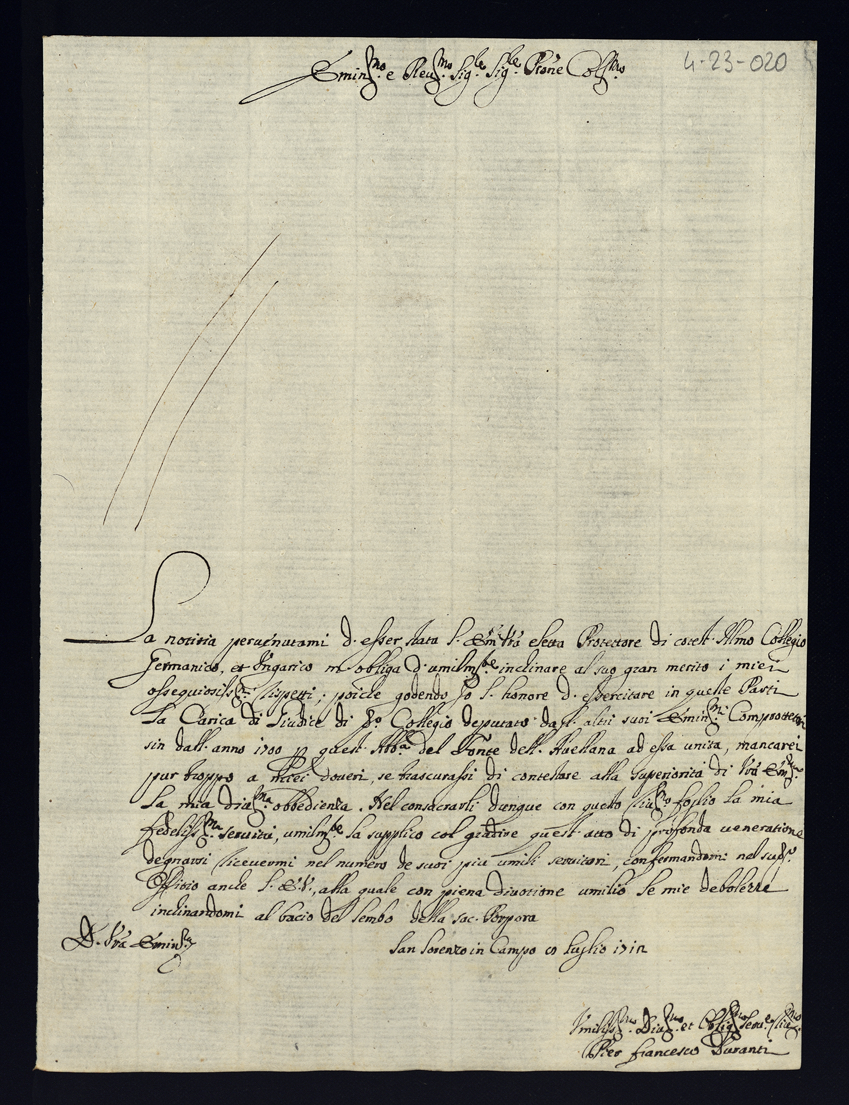 4-23-020
Emin.mo e Reu.mo Sig.re Sig.re Prone Col.mo
La notitia peruenutami d'esser stata l'Em. Vra eletta Protettore di cotest'Almo Collegio
Germanico, et Ungarico m'obliga d'umilm.te inclinare al suo gran merito i miei
ossequiosiss.mi rispetti; poiche godendo Io l'honore d'essercitare in queste Parti
la Carica di Giudice di d.o Collegio deputato dagl'altri suoi Emin.mi Comprotettori
sin dall'anno 1700 p quest'Abb.a del Fonte dell'Auellana ad essa unita, mancarei
pur troppo a miei doueri, se trascurassi di contestare alla superiorità di Vra Em.za
la mia diu.ma obbedienza. Nel consacrarli dunque con questo riu.mo foglio la mia
fedeliss.ma seruitù, umilm.te la supplico col gradire quest'atto di profonda ueneratione
degnarsi riceuermi nel numero de suoi più umili seruitori, confermandomi nel sud.o
Offitio anche l'E.V., alla quale con piena diuotione umilio le mie debolezze
inclinandomi al bacio del lembo della sac. Porpora
D. Vra Emin.za
San Lorenzo in Campo Luglio 1712
Umiliss.mo Diu.mo et Oblig.mo Seru.e
Pier Francesco Duranti